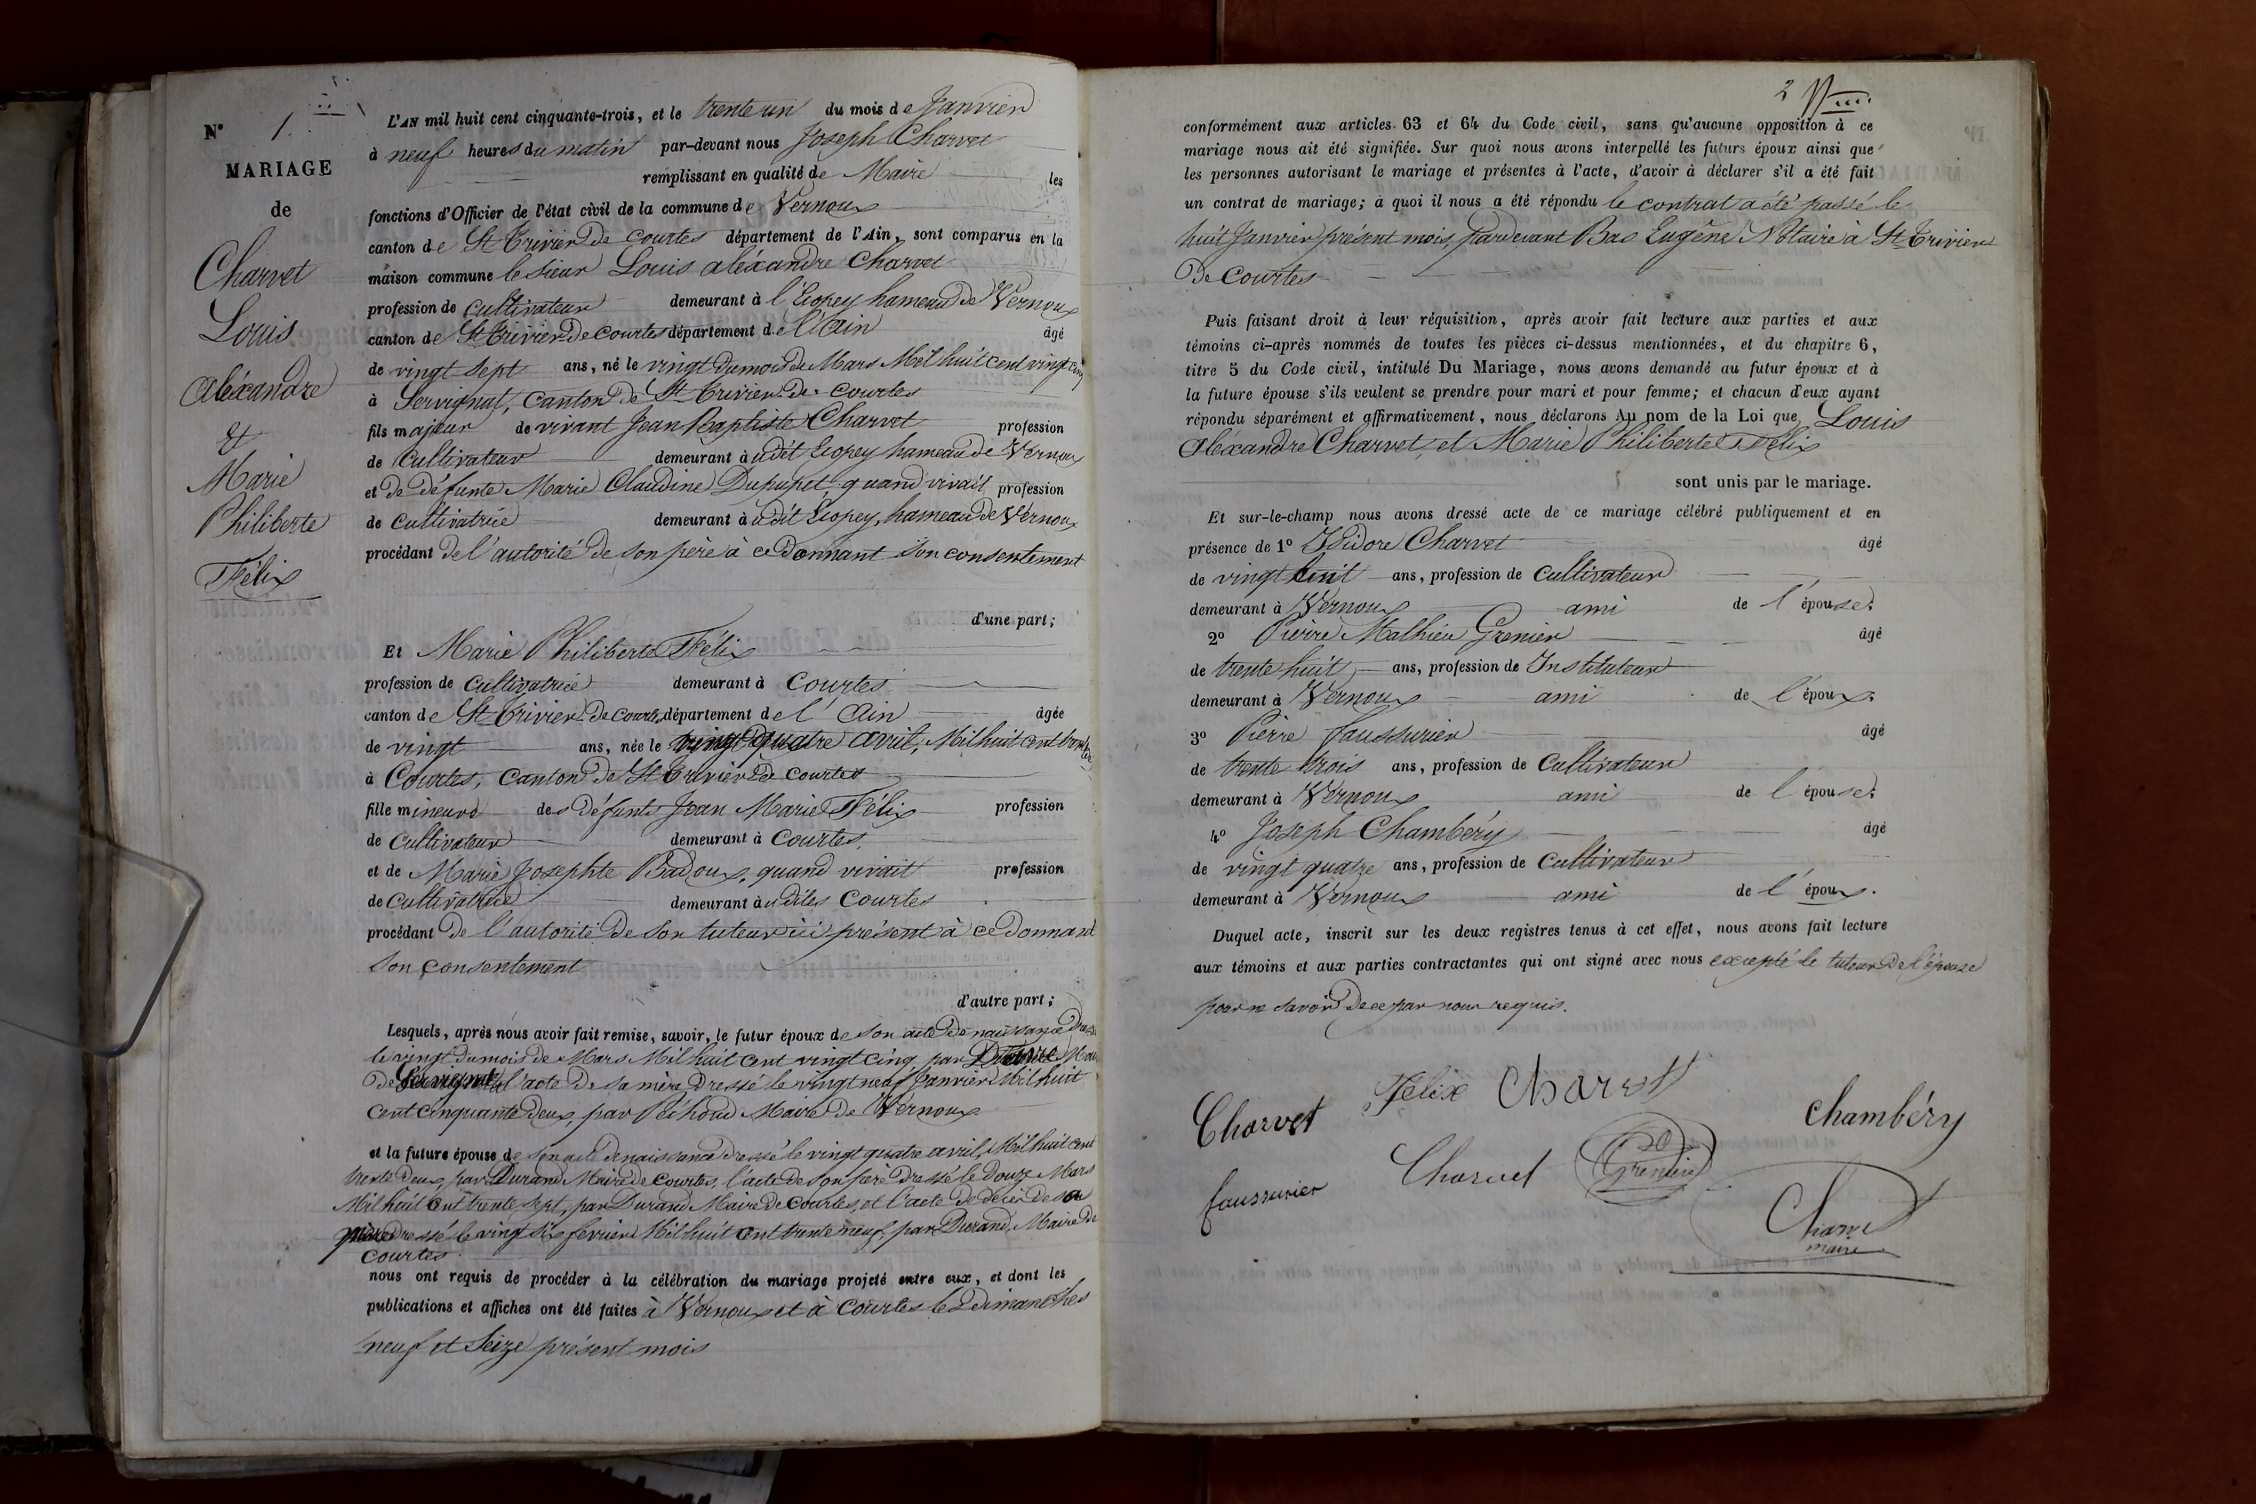 N° 1.
MARIAGE
de
Charvet
Louis
aléxandre
Et
Marie
Philiberte
Félix
L'AN mil huit cent cinquante-trois, et le trente un du mois de Janvier
à neuf heures du matin par-devant nous Joseph Charvet
remplissant en qualité de Maire les
fonctions d'Officier de l'état civil de la commune de Vernoux
canton de St Trivier de courtes département de l'Ain, sont comparus en la
maison commune le sieur Louis aléxandre Charvet
profession de cultivateur demeurant à l'Ecopey hameau de Vernoux
canton de St Trivier de courtes département de l'ain âgé
de vingt sept ans, né le vingt du mois de Mars Mil huit cent vingt cinq
à Servignat, canton de St Trivier de courtes
fils majeur de vivant Jean Baptiste Charvet profession
de cultivateur demeurant à udit Ecopey hameau de Vernoux
et de défunte Marie Claudine Dupupet, quand vivait profession
de cultivatrice demeurant à udit Ecopey, hameau de Vernoux
procédant de l'autorité de son père à ce donnant son consentement
d'une part;
Et Marie Philiberte Félix
profession de cultivatrice demeurant à Courtes
canton de St Trivier de courtes département de l'ain âgée
de vingt ans, née le vingt quatre avril, Mil huit cent trente deux
à Courtes, canton de St Trivier de courtes
fille mineure des défunts Jean Marie Félix profession
de cultivateur demeurant à courtes,
et de Marie Josephte Badoux, quand vivait profession
de cultivatrice demeurant à udites Courtes
procédant de l'autorité de son tuteur ici présent à ce donnant
son consentement
d'autre part;
Lesquels, après nous avoir fait remise, savoir, le futur époux de son acte de naissance dressé
le vingt du mois de Mars Mil huit cent vingt cinq par Maire
de Servignat l'acte de sa mère dressé le vingt neuf Janvier Mil huit
cent cinquante deux, par Péchoud Maire de Vernoux
et la future épouse de son acte de naissance dressé le vingt quatre avril Mil huit cent
trente deux par Durand Maire de courtes, l'acte de son père dressé le douze Mars
Mil huit cent trente sept, par Durand Maire de courtes, et l'acte de décès de sa
mère dressé le vingt six fevrier Mil huit cent trente neuf, par Durand, Maire de
courtes
nous ont requis de procéder à la célébration du mariage projeté entre eux, et dont les
publications et affiches ont été faites à Vernoux et à Courtes les dimanches
neuf et seize présent mois
2
conformément aux articles 63 et 64 du Code civil, sans qu'aucune opposition à ce
mariage nous ait été signifiée. Sur quoi nous avons interpellé les futurs époux ainsi que
les personnes autorisant le mariage et présentes à l'acte, d'avoir à déclarer s'il a été fait
un contrat de mariage; à quoi il nous a été répondu le contrat a été passé le
huit Janvier présent mois, pardevant Bas Eugène Notaire à St Trivier
de courtes
Puis faisant droit à leur réquisition, après avoir fait lecture aux parties et aux
témoins ci-après nommés de toutes les pièces ci-dessus mentionnées, et du chapitre 6,
titre 5 du Code civil, intitulé Du Mariage, nous avons demandé au futur époux et à
la future épouse s'ils veulent se prendre pour mari et pour femme; et chacun d'eux ayant
répondu séparément et affirmativement, nous déclarons Au nom de la Loi que Louis
aléxandre Charvet, et Marie Philiberte Félix
sont unis par le mariage.
Et sur-le-champ nous avons dressé acte de ce mariage célébré publiquement et en
présence de 1° Isidore Charvet âgé
de vingt huit ans, profession de cultivateur
demeurant à Vernoux ami de l'épouse.
2° Pierre Mathieu Grenier âgé
de trente huit ans, profession de Instituteur
demeurant à Vernoux ami de l'époux.
3° Pierre faussurier âgé
de trente trois ans, profession de cultivateur
demeurant à Vernoux ami de l'épouse.
4° Joseph Chambéry âgé
de vingt quatre ans, profession de cultivateur
demeurant à Vernoux ami de l'époux.
Duquel acte, inscrit sur les deux registres tenus à cet effet, nous avons fait lecture
aux témoins et aux parties contractantes qui ont signé avec nous excepté le tuteur de l'épouse
pour ne savoir de ce par nous requis.
Charvet Félix Charvet Chambéry
faussurier Charvet Grenier
Charvet
maire